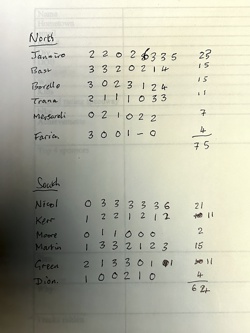 North
Januiro 2 2 0 2 6 3 3 5 23
Bast 3 3 2 0 2 1 4 15
Borello 3 0 2 3 1 2 4 15
Trana 2 1 1 1 0 3 3 11
0 2 1 0 2 2 7
Farina 3 0 0 1 - 0 4
75
South
Nicol 0 3 3 3 3 3 6 21
Kerr 1 2 2 1 2 1 2 11
Moore 0 1 1 0 0 0 2
Martin 1 3 3 2 1 2 3 15
Green 2 1 3 3 0 1 1 11
Dion 1 0 0 2 1 0 4
64